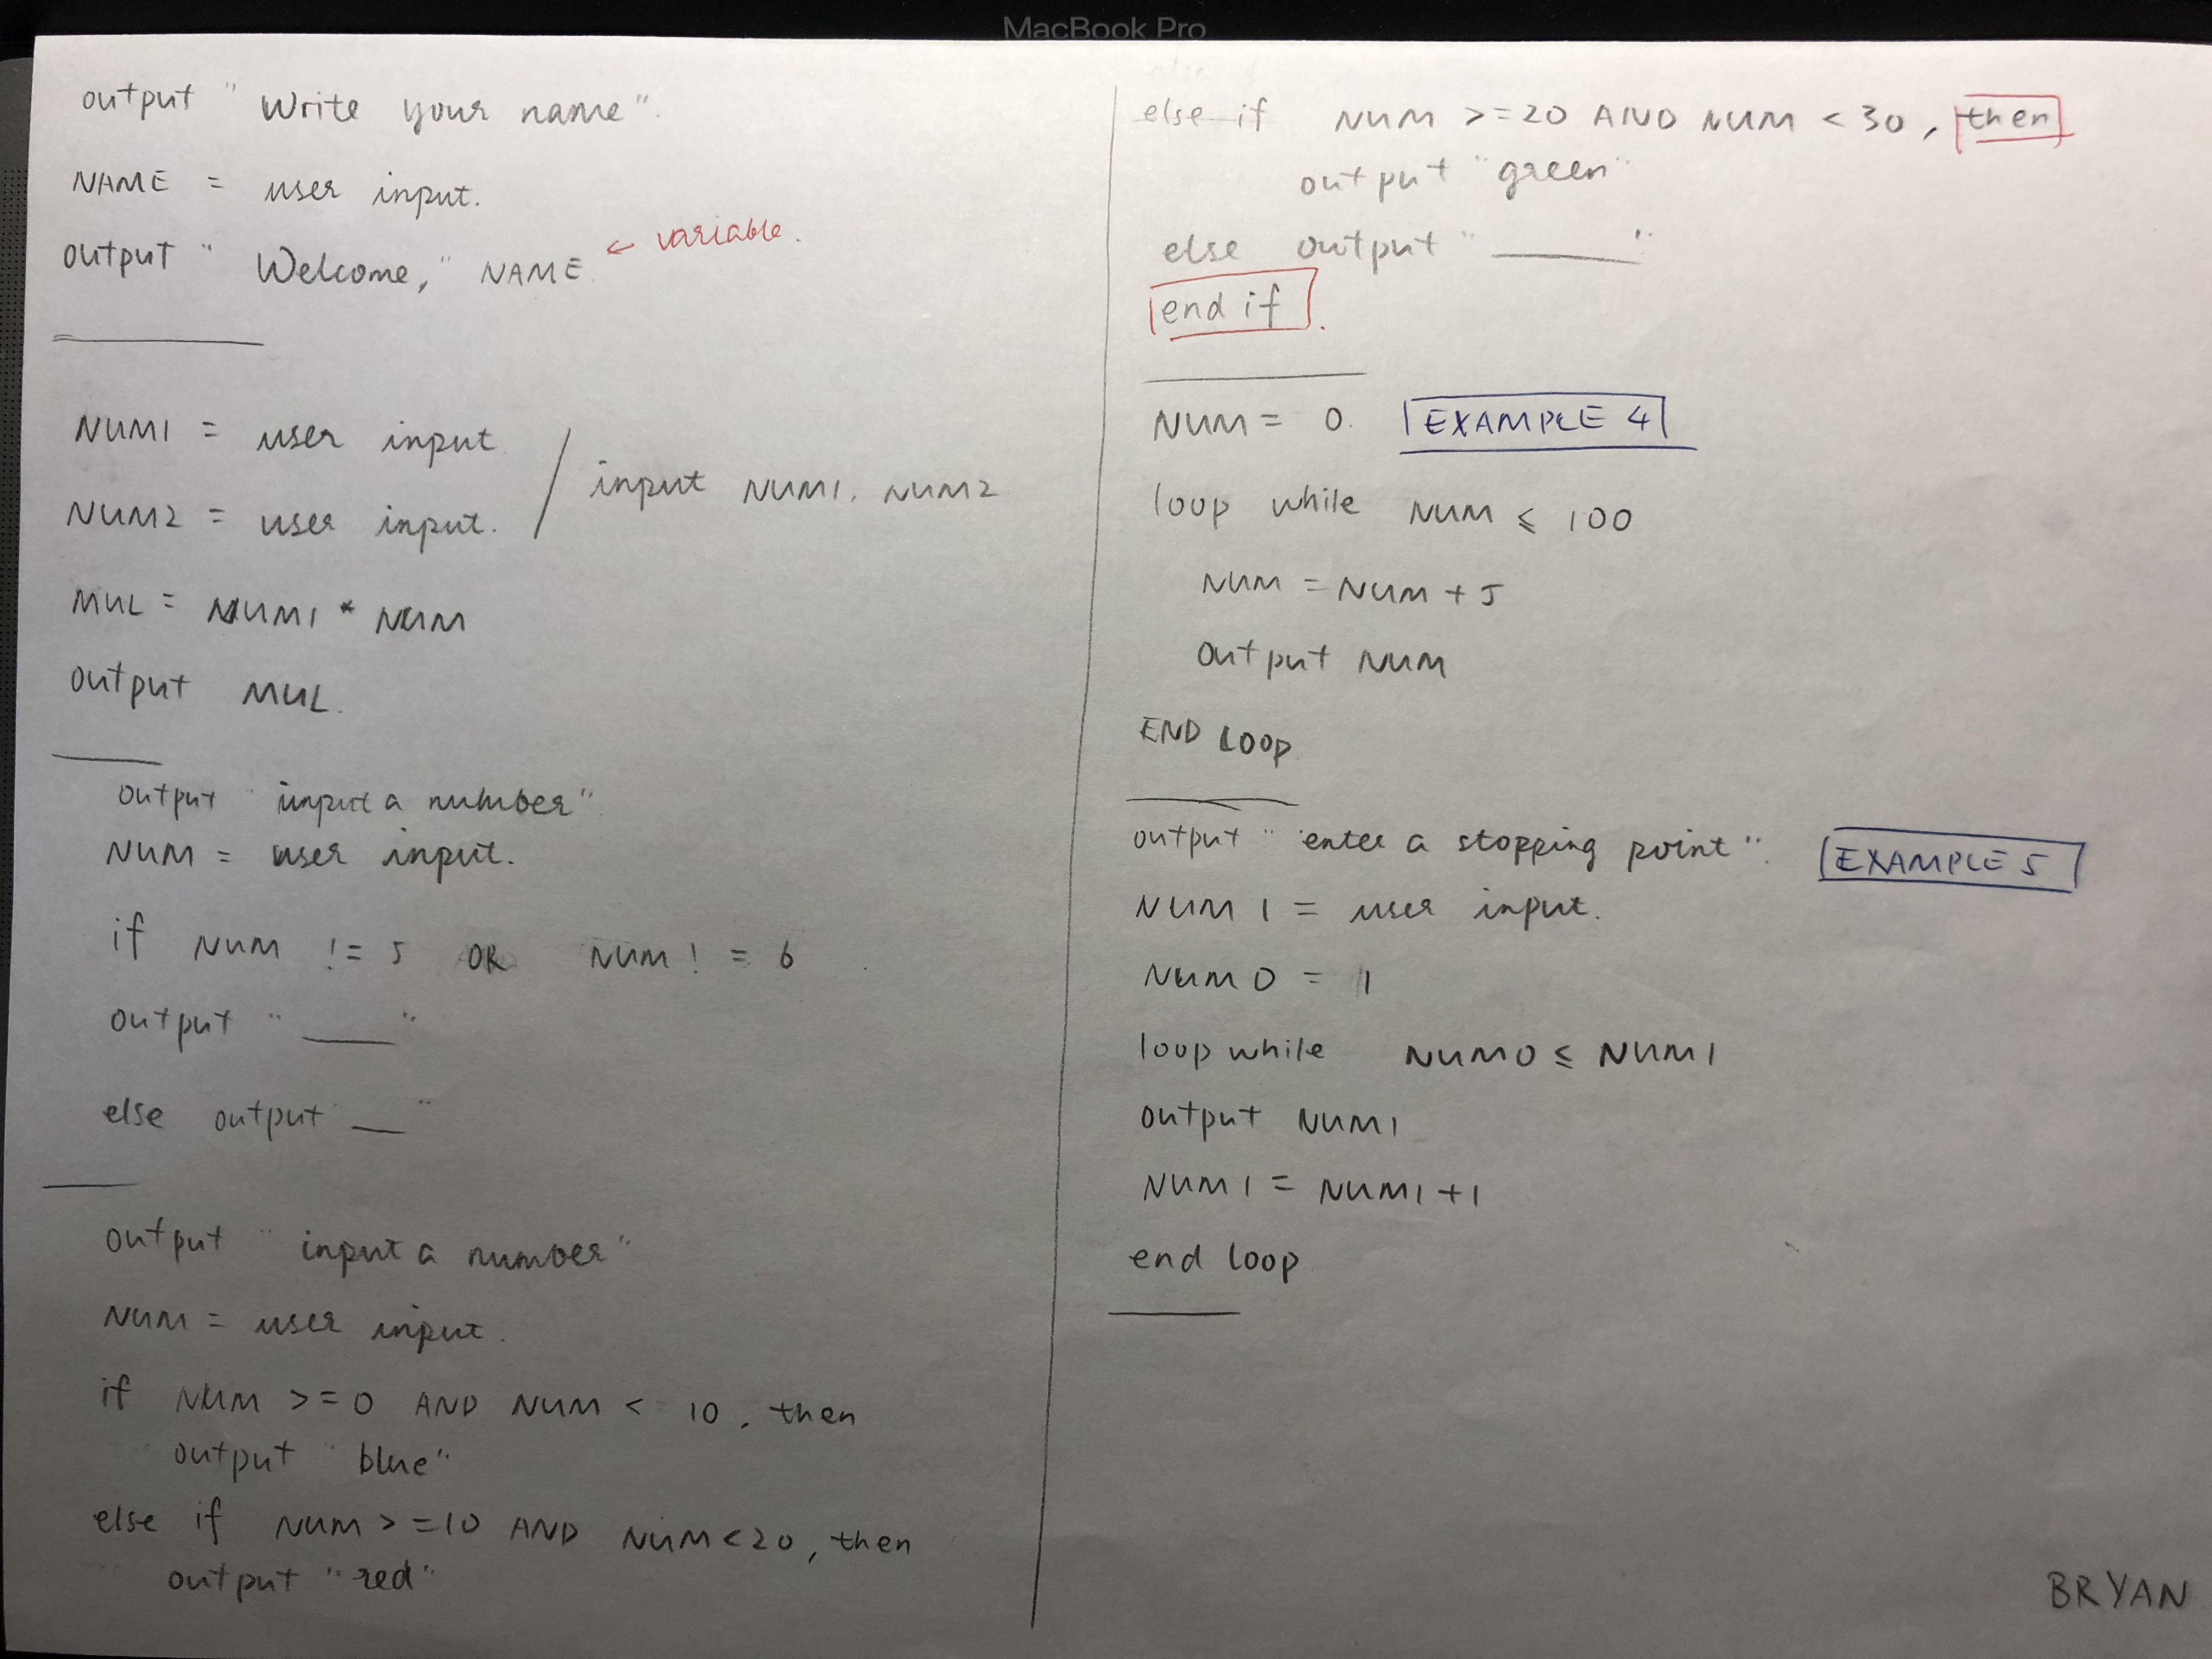 MacBook Pro
output "Write your name".
NAME = user input.
output "Welcome," NAME. ← variable.
NUM1 = user input
NUM2 = user input. / input NUM1, NUM2
MUL = NUM1 * NUM
output MUL.
output "input a number"
NUM = user input.
if NUM != 5 OR NUM != 6
output "____"
else output "__"
output "input a number"
NUM = user input.
if NUM >=0 AND NUM < 10, then
output "blue"
else if NUM >=10 AND NUM<20, then
output "red"
else if NUM >=20 AND NUM < 30, then
output "green"
else output "______"
end if.
NUM = 0. EXAMPLE 4
loop while NUM ≤ 100
NUM = NUM + 5
output NUM
END LOOP
output "enter a stopping point". EXAMPLE 5
NUM1 = user input.
NUM0 = 1
loop while NUM0 ≤ NUM1
output NUM1
NUM1 = NUM1+1
end loop
BRYAN